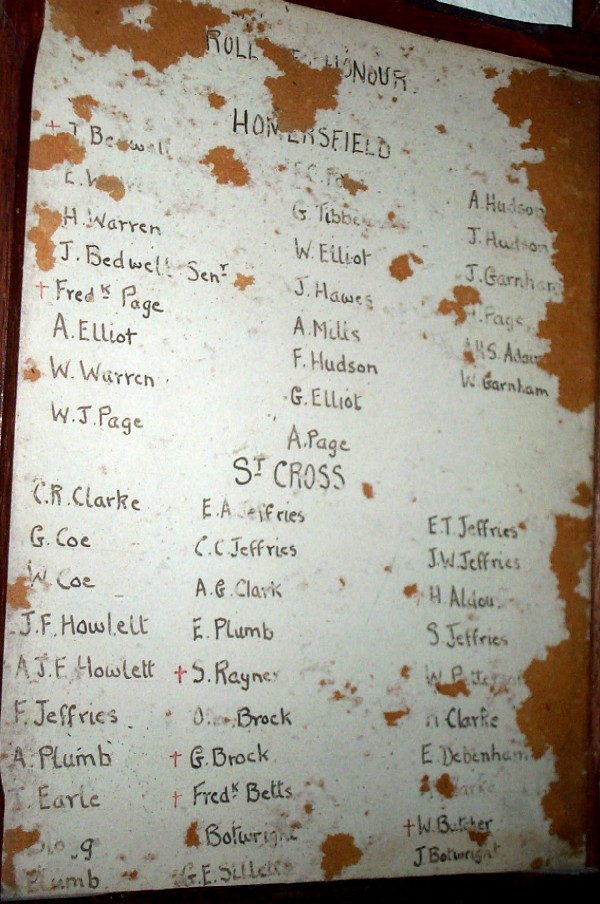 ROLL HONOUR.
HOMERSFIELD
† J. Bedwell
E.
H. Warren
J. Bedwell Senr
† Fredk Page
A. Elliot
W. Warren
W. J. Page
G. Tibbe
W. Elliot
J. Hawes
A. Mills
F. Hudson
G. Elliot
A. Page
A. Hudson
J. Hudson
J. Garnham
Page
S. Adair
W. Garnham
ST CROSS
C. R. Clarke
G. Coe
W. Coe
J. F. Howlett
A J. F. Howlett
F. Jeffries
A. Plumb
Earle
g
Plumb
E. A Jeffries
C. C. Jeffries
A. G. Clark
E. Plumb
† S. Rayner
Brock
† G. Brock
† Fredk Betts
Botwright
G. E. Sillett
E. T. Jeffries
J. W. Jeffries
H. Aldou
S. Jeffries
W.
Clarke
E. Debenham
† W. Butcher
J. Botwright